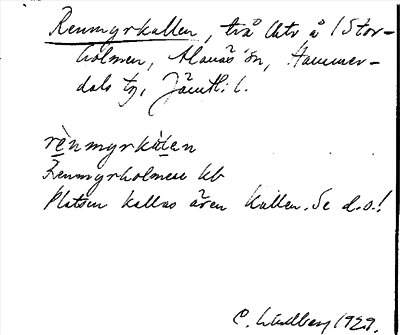 Renmyrkullen, två åbtr å 1 Stor-
holmen, Alanäs sn, Hammer-
dals tg, Jämtl: l.
rènmyrkúlen
Renmyrholmen kb
Platsen kallas även Kullen. Se d.o.!
C. Lindberg 1929.